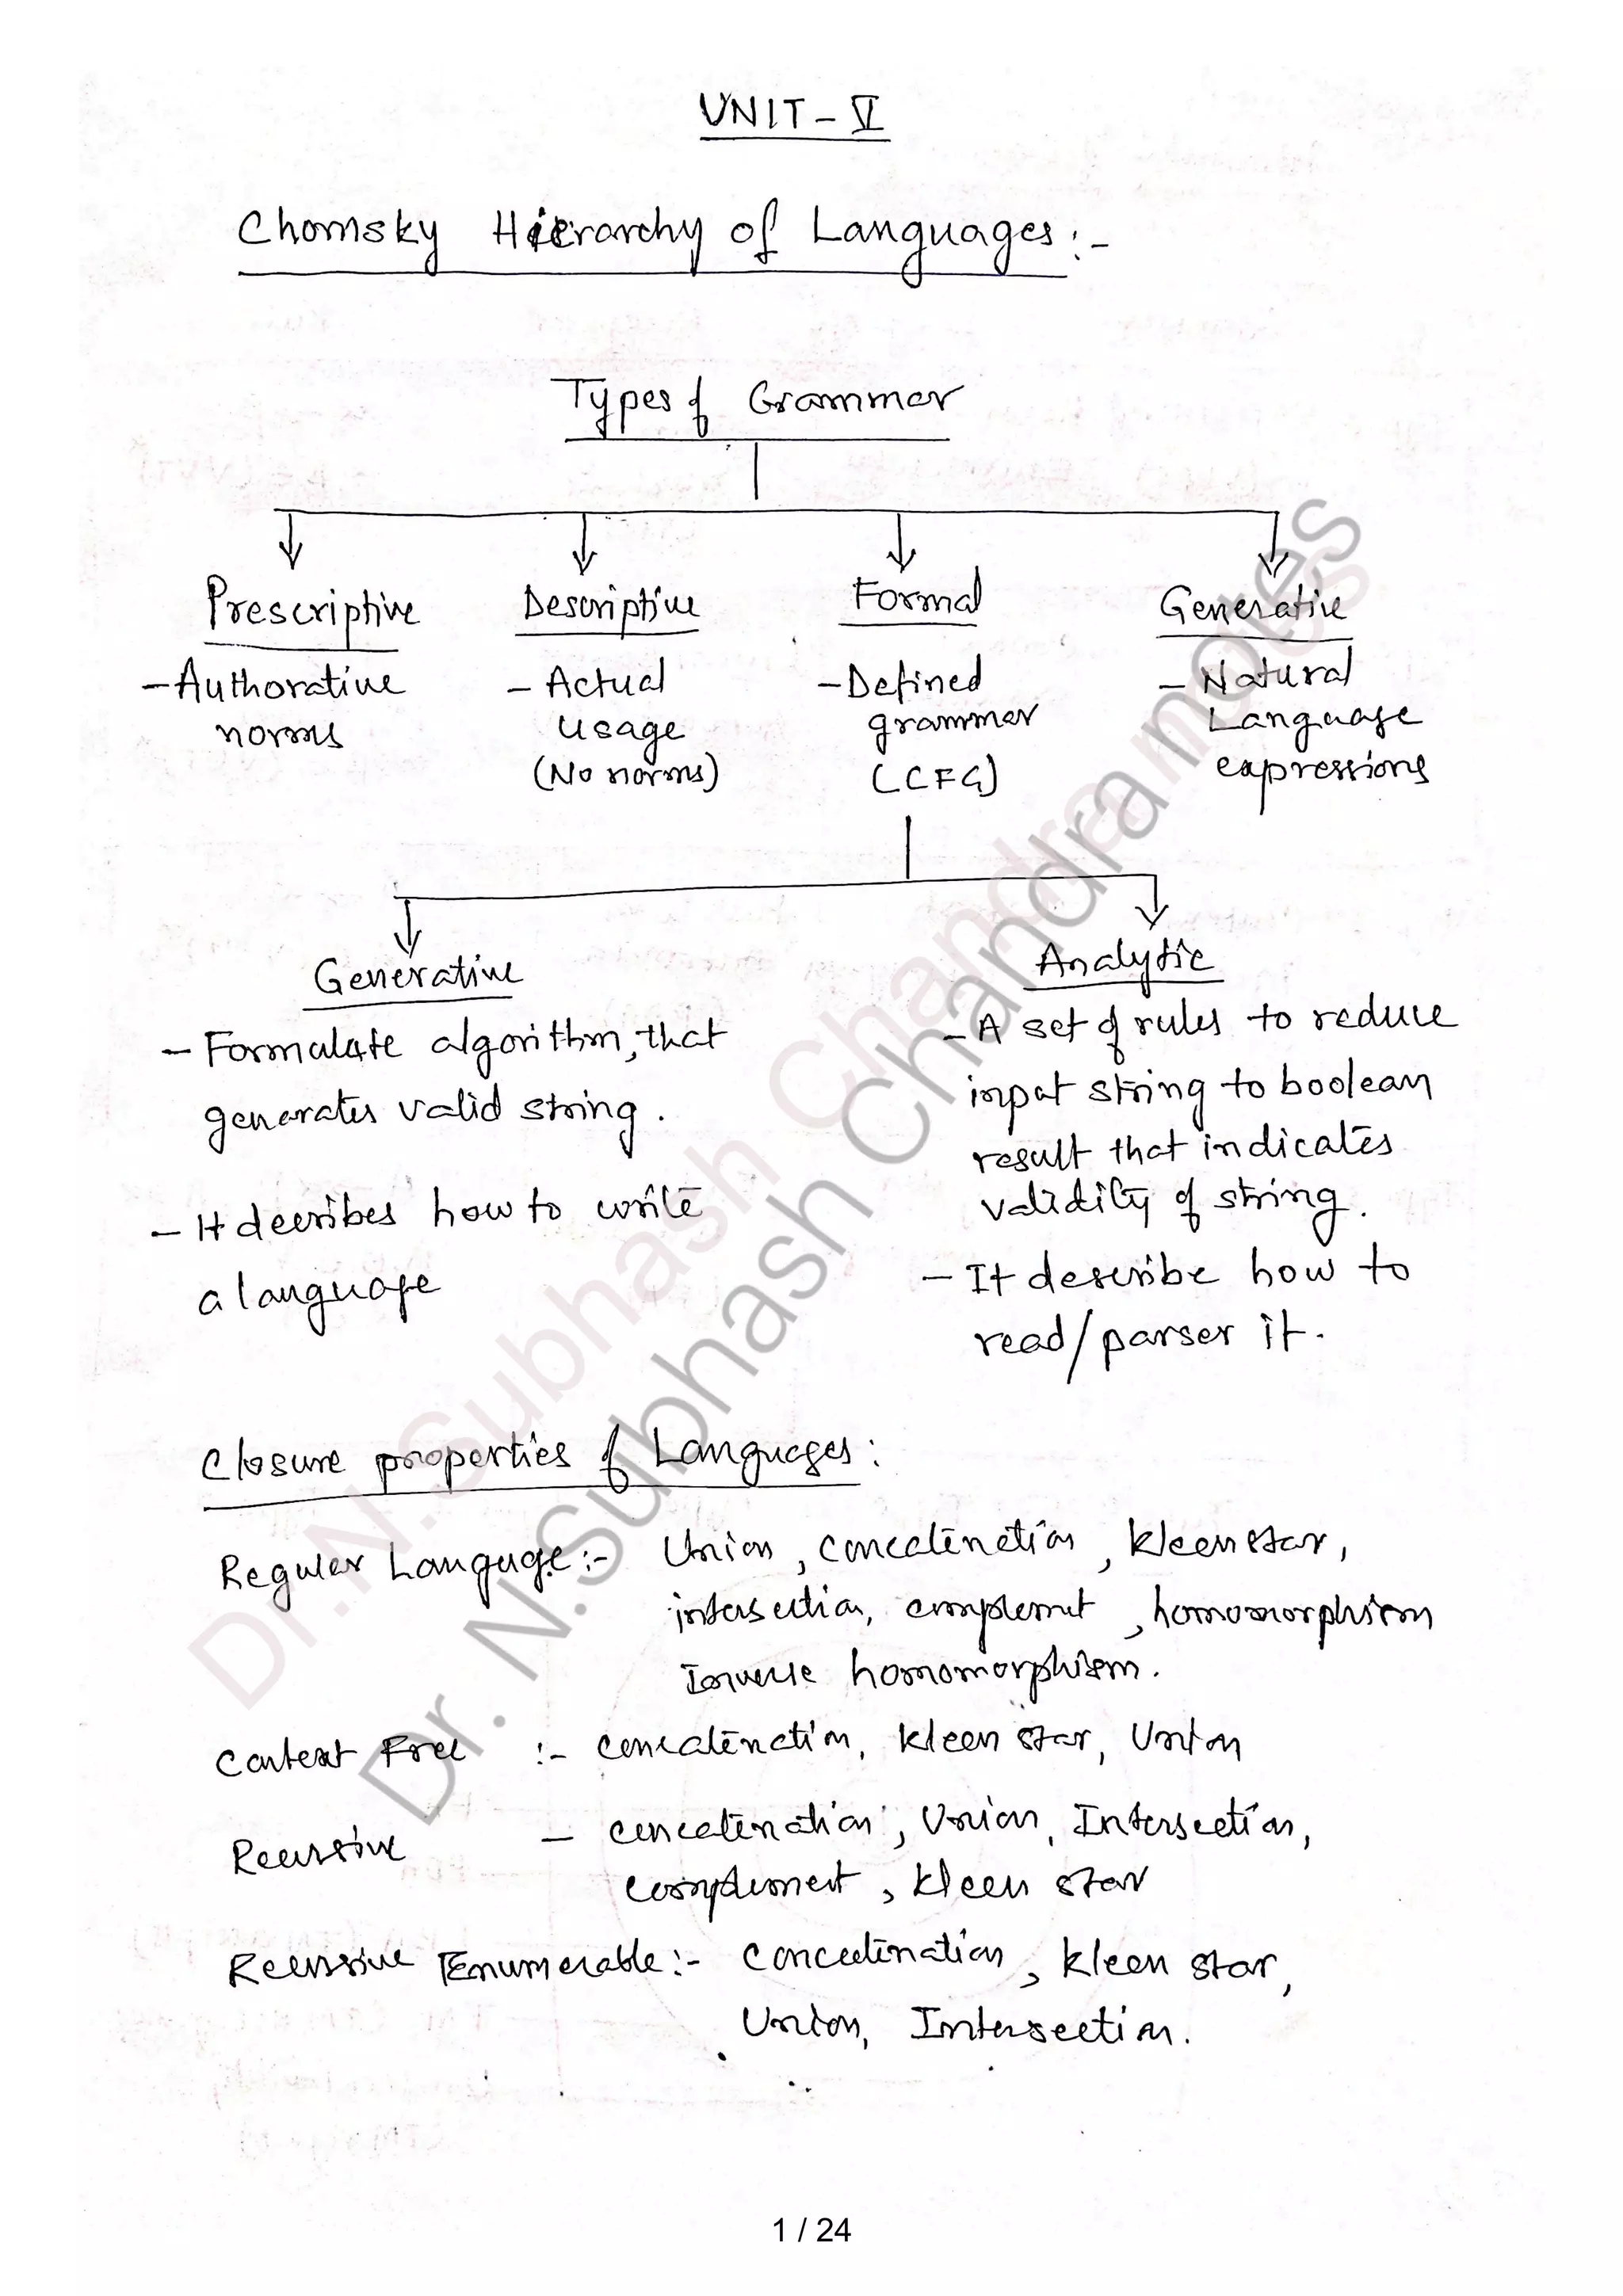 UNIT - V
Chomsky Hierarchy of Languages :-
Types of Grammer
Prescriptive
- Authorative
norms
Descriptive
- Actual
Usage
(No norms)
Formal
- Defined
grammer
(CFG)
Generative
- Natural
Language
expressions
Generative
- Formulate algorithm, that
generates valid string.
- It decribes how to write
a language
Analytic
- A set of rules to reduce
input string to boolean
result that indicates
validity of string.
- It describe how to
read/parser it.
Closure properties of Languages :
Reguler Language :- Union, concatenation, kleen star,
intersection, complement, homomorphism
Inverse homomorphism.
Context Free :- concatenation, kleen star, Union
Recursive - concatenation, Union, Intersection,
complement, kleen star
Recursive Enumerable :- Concatenation, kleen star,
Union, Intersection.
Dr. N.Subhash Chandra notes
Dr. N.Subhash Chandra notes
1 / 24